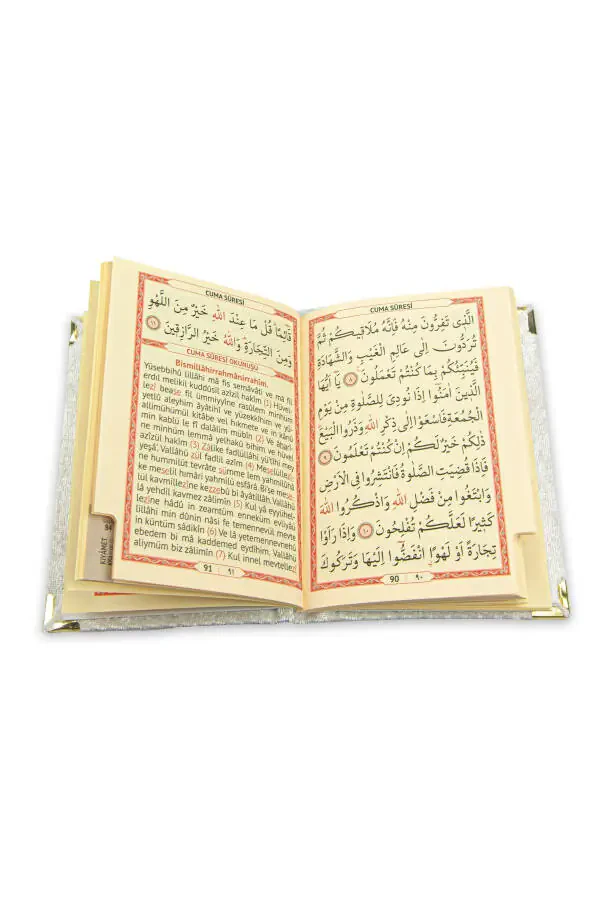 CUMA SÛRESİ
الَّذ۪ي تَفِرُّونَ مِنْهُ فَاِنَّهُ مُلَاق۪يكُمْ ثُمَّ
تُرَدُّونَ اِلٰى عَالِمِ الْغَيْبِ وَالشَّهَادَةِ
فَيُنَبِّئُكُمْ بِمَا كُنْتُمْ تَعْمَلُونَ ٨ يَٓا اَيُّهَا
الَّذ۪ينَ اٰمَنُٓوا اِذَا نُودِيَ لِلصَّلٰوةِ مِنْ يَوْمِ
الْجُمُعَةِ فَاسْعَوْا اِلٰى ذِكْرِ اللّٰهِ وَذَرُوا الْبَيْعَۜ
ذٰلِكُمْ خَيْرٌ لَكُمْ اِنْ كُنْتُمْ تَعْلَمُونَ ٩
فَاِذَا قُضِيَتِ الصَّلٰوةُ فَانْتَشِرُوا فِي الْاَرْضِ
وَابْتَغُوا مِنْ فَضْلِ اللّٰهِ وَاذْكُرُوا اللّٰهَ
كَث۪يرًا لَعَلَّكُمْ تُفْلِحُونَ ١٠ وَاِذَا رَاَوْا
تِجَارَةً اَوْ لَهْوًاۨ انْفَضُّٓوا اِلَيْهَا وَتَرَكُوكَ
90 ٩٠
CUMA SÛRESİ
قَٓائِمًاۜ قُلْ مَا عِنْدَ اللّٰهِ خَيْرٌ مِنَ اللَّهْوِ
وَمِنَ التِّجَارَةِۜ وَاللّٰهُ خَيْرُ الرَّازِق۪ينَ ١١
CUMA SÛRESİ OKUNUŞU
Bismillâhirrahmânirrahîm.
Yüsebbihü lillâhi mâ fis semâvâti ve mâ fil
erdı melikil kuddûsil azîzil hakîm (1) Hüvel-
lezî bease fil ümmiyyîne rasûlem minhüm
yetlû aleyhim âyâtihî ve yüzekkîhim ve yü-
allimühümül kitâbe vel hıkmete ve in kânû
min kablü le fî dalâlim mübîn (2) Ve âharî-
ne minhüm lemmâ yelhakû bihim ve hüvel
azîzül hakîm (3) Zâlike fadlüllâhi yü'tîhi mey
yeşâ'. Vallâhü zül fadlil azîm (4) Meselüllezî-
ne hummilüt tevrâte sümme lem yahmilûhâ
ke meselil hımâri yahmilü esfârâ. Bi'se mese-
lül kavmillezîne kezzebû bi âyâtillâh. Vallâhü
lâ yehdil kavmez zâlimîn (5) Kul yâ eyyühel-
lezîne hâdû in zeamtüm enneküm evliyâü
lillâhi min dûnin nâsi fe temennevül mevte
in küntüm sâdikîn (6) Ve lâ yetemennevnehû
ebedem bi mâ kaddemed eydîhim. Vallâhü
alîymum biz zâlimîn (7) Kul innel mevtellezî
91 ٩١
94
KIYAMET